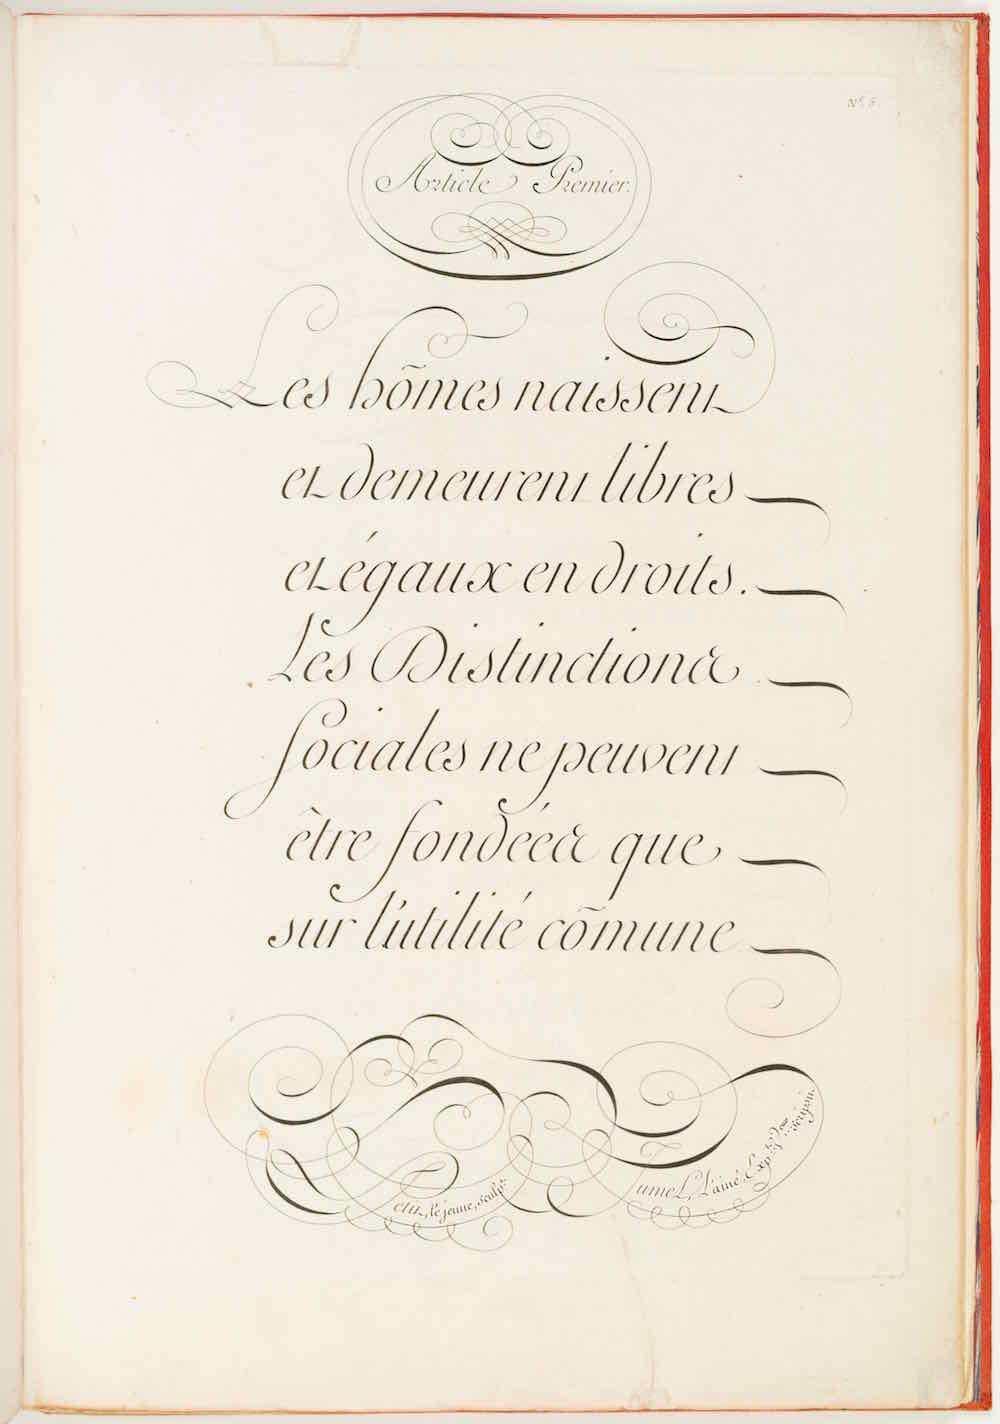 N.º 5.
Article Premier.
Les hõmes naissent
et demeurent libres
et égaux en droits.
Les Distinctions
Sociales ne peuvent
être fondées que
sur l'utilité cõmune
le jeune, sculp.
L'ainé, Exp.
scripsit.